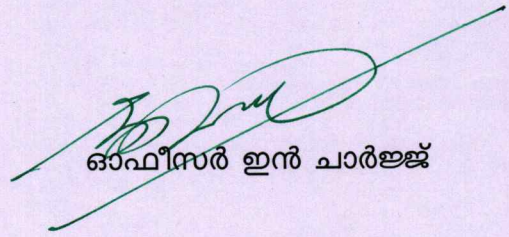 ഓഫീസർ ഇൻ ചാർജ്ജ്